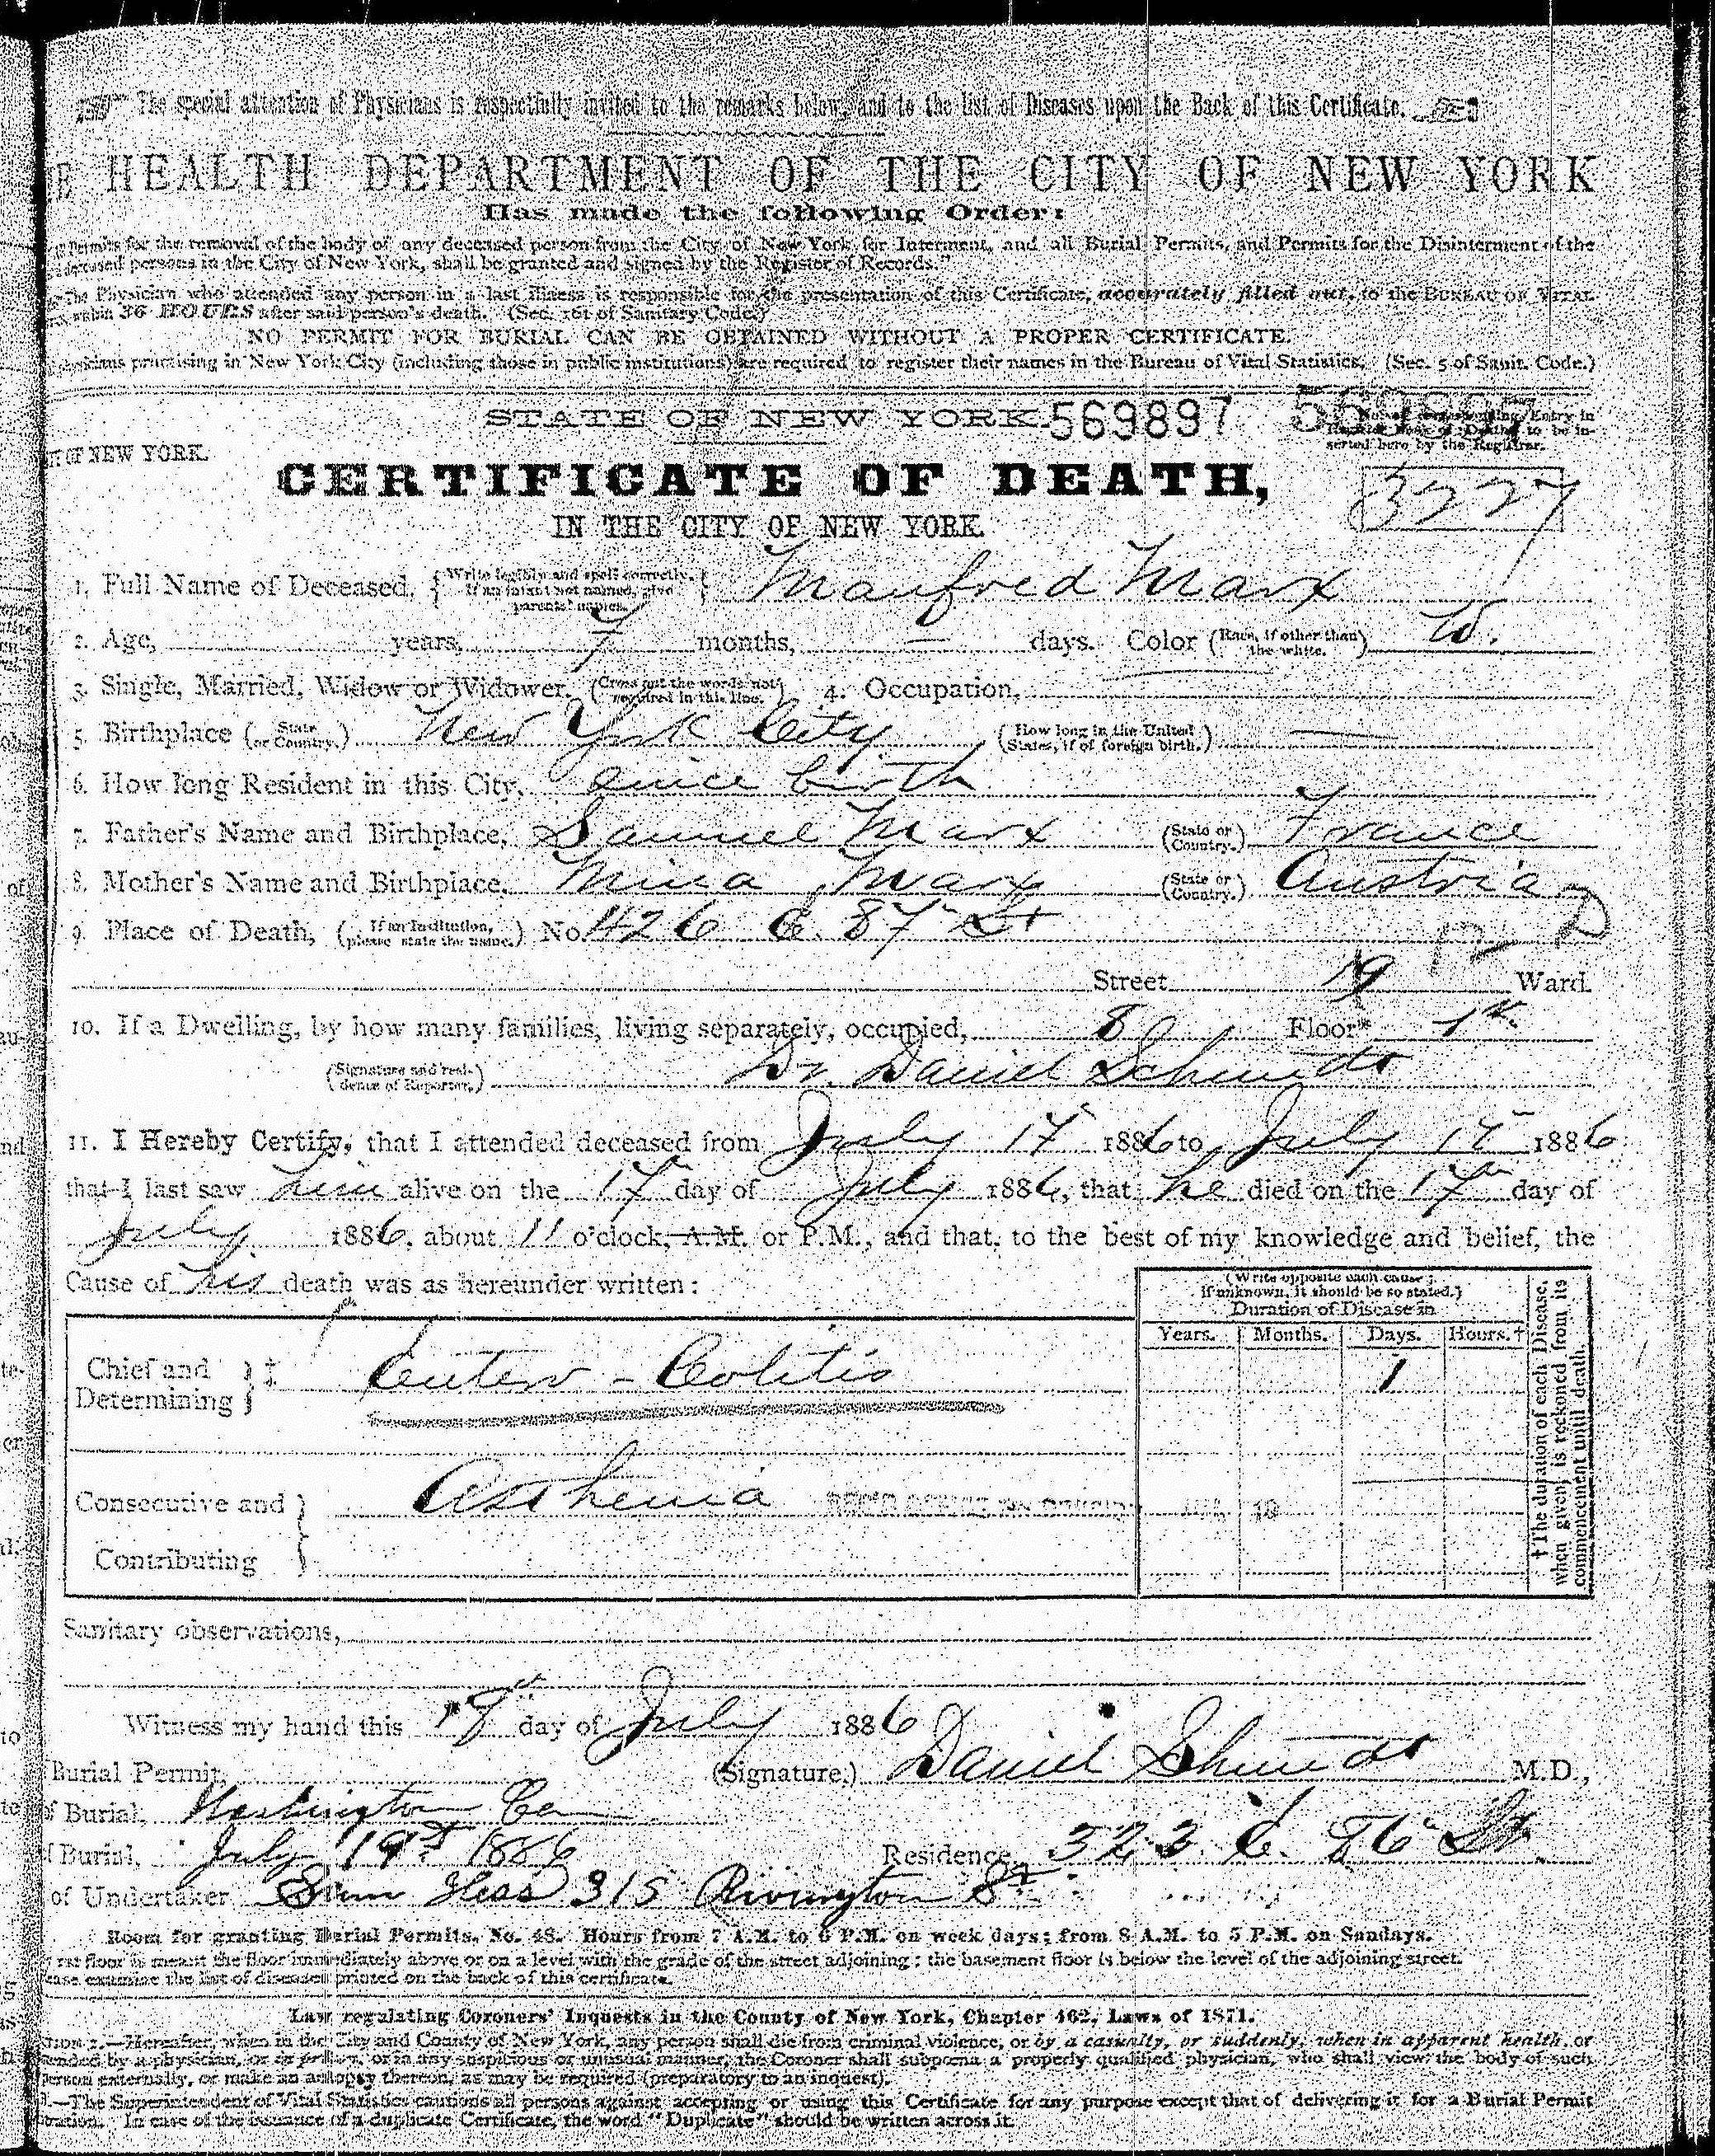 The special attention of Physicians is respectfully invited to the remarks below, and to the list of Diseases upon the Back of this Certificate.
E HEALTH DEPARTMENT OF THE CITY OF NEW YORK
Has made the following Order:
Permits for the removal of the body of any deceased person from the City of New York for Interment, and all Burial Permits, and Permits for the Disinterment of the
deceased persons in the City of New York, shall be granted and signed by the Register of Records."
The Physician who attended any person in a last illness is responsible for the presentation of this Certificate, accurately filled out, to the BUREAU OF VITAL
within 36 HOURS after said person's death. (Sec. 161 of Sanitary Code.)
NO PERMIT FOR BURIAL CAN BE OBTAINED WITHOUT A PROPER CERTIFICATE.
physicians practising in New York City (including those in public institutions) are required to register their names in the Bureau of Vital Statistics. (Sec. 5 of Sanit. Code.)
STATE OF NEW YORK. 569897
Entry in
to be in-
serted here by the Registrar.
OF NEW YORK.
CERTIFICATE OF DEATH,
3227
IN THE CITY OF NEW YORK.
1. Full Name of Deceased, {Write legibly and spell correctly. If an infant not named, give parents' names.} Manfred Marx
2. Age, years, 7 months, — days. Color (Race, if other than the white.) W.
3. Single, Married, Widow or Widower. (Cross out the words not required in this line.) 4. Occupation,
5. Birthplace (State or Country.) New York City (How long in the United States, if of foreign birth.) —
6. How long Resident in this City, since birth
7. Father's Name and Birthplace, Samuel Marx (State or Country.) France
8. Mother's Name and Birthplace, Mina Marx (State or Country.) Austria
9. Place of Death, (If an Institution, please state the name.) No. 426 E. 87" St
12 D
Street 19 Ward.
10. If a Dwelling, by how many families, living separately, occupied, 8 Floor* 1st.
(Signature and residence of Reporter.) Dr. Daniel Schmidt
11. I Hereby Certify, that I attended deceased from July 17 1886 to July 17 1886
that I last saw him alive on the 17 day of July 1886, that he died on the 17th day of
July 1886, about 11 o'clock, A.M. or P.M., and that, to the best of my knowledge and belief, the
Cause of his death was as hereunder written:
(Write opposite each cause; if unknown, it should be so stated.)
Duration of Disease in
Years. Months. Days. Hours.†
Chief and Determining ‡ Entero-Colitis 1
Consecutive and Contributing Asthenia
†The duration of each Disease, when given, is reckoned from its commencement until death.
Sanitary observations,
Witness my hand this 18" day of July 1886
Burial Permit, (Signature,) Daniel Schmidt M.D.,
f Burial, Washington Cem
f Burial, July 19th 1886 Residence 323 E. 86" St.
of Undertaker Sam Hess 315 Rivington St
Room for granting Burial Permits, No. 48. Hours from 7 A.M. to 6 P.M. on week days; from 8 A.M. to 5 P.M. on Sundays.
rst floor is meant the floor immediately above or on a level with the grade of the street adjoining; the basement floor is below the level of the adjoining street.
ease examine the list of diseases printed on the back of this certificate.
Law regulating Coroners' Inquests in the County of New York, Chapter 462, Laws of 1871.
TION 1.—Hereafter, when in the City and County of New York, any person shall die from criminal violence, or by a casualty, or suddenly, when in apparent health, or
ended by a physician, or in prison, or in any suspicious or unusual manner, the Coroner shall subpœna a properly qualified physician, who shall view the body of such
person externally, or make an autopsy thereon, as may be required (preparatory to an inquest).
—The Superintendent of Vital Statistics cautions all persons against accepting or using this Certificate for any purpose except that of delivering it for a Burial Permit
tration. In case of the issuance of a duplicate Certificate, the word "Duplicate" should be written across it.